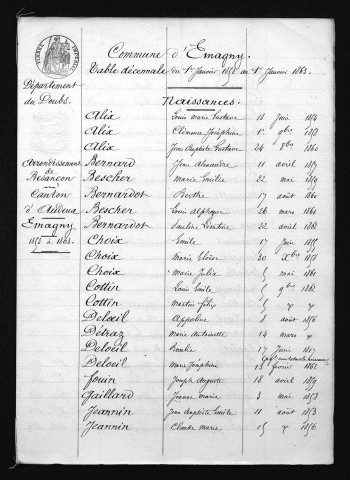 Commune d'Emagny
Table décennale du 1er Janvier 1853 au 1er Janvier 1863.
Département
du Doubs.
Arrondissement
de
Besançon
Canton
d'Audeux
Emagny
1853 à 1863.
Naissances:
Alix Louis Marie Gustave 11 Juin
Alix Clémence Joséphine 1er 9bre
Alix Jean Baptiste Gustave 24 8bre 1860
Bernard Jean Alexandre 11 avril
Bescher Marie Emilie 22 mai
Bernardot Berthe 17 août 1860
Bescher Louis Alphonse 26 mars 1861
Bernardot Pauline Léontine 22 avril 1862
Choix Emile 17 Juin
Choix Marie Eloïse 30 Xbre
Choix Marie Julie 5 mai 1861
Cottin Louis Emile 5 9bre 1862
Cottin Martin Félix 5 " "
Deloeil Appoline 8 août 1856
Détraz Marie Antoinette 14 mars "
Deloeil 17 Juin
Deloeil Marie Joséphine 13 février 1862
Jouin Joseph Auguste 18 avril 1859
Gaillard Jeanne Marie 3 mai 1853
Jeannin Jean Baptiste Emile 11 août 1853
Jeannin Claude Marie 15 " 1856